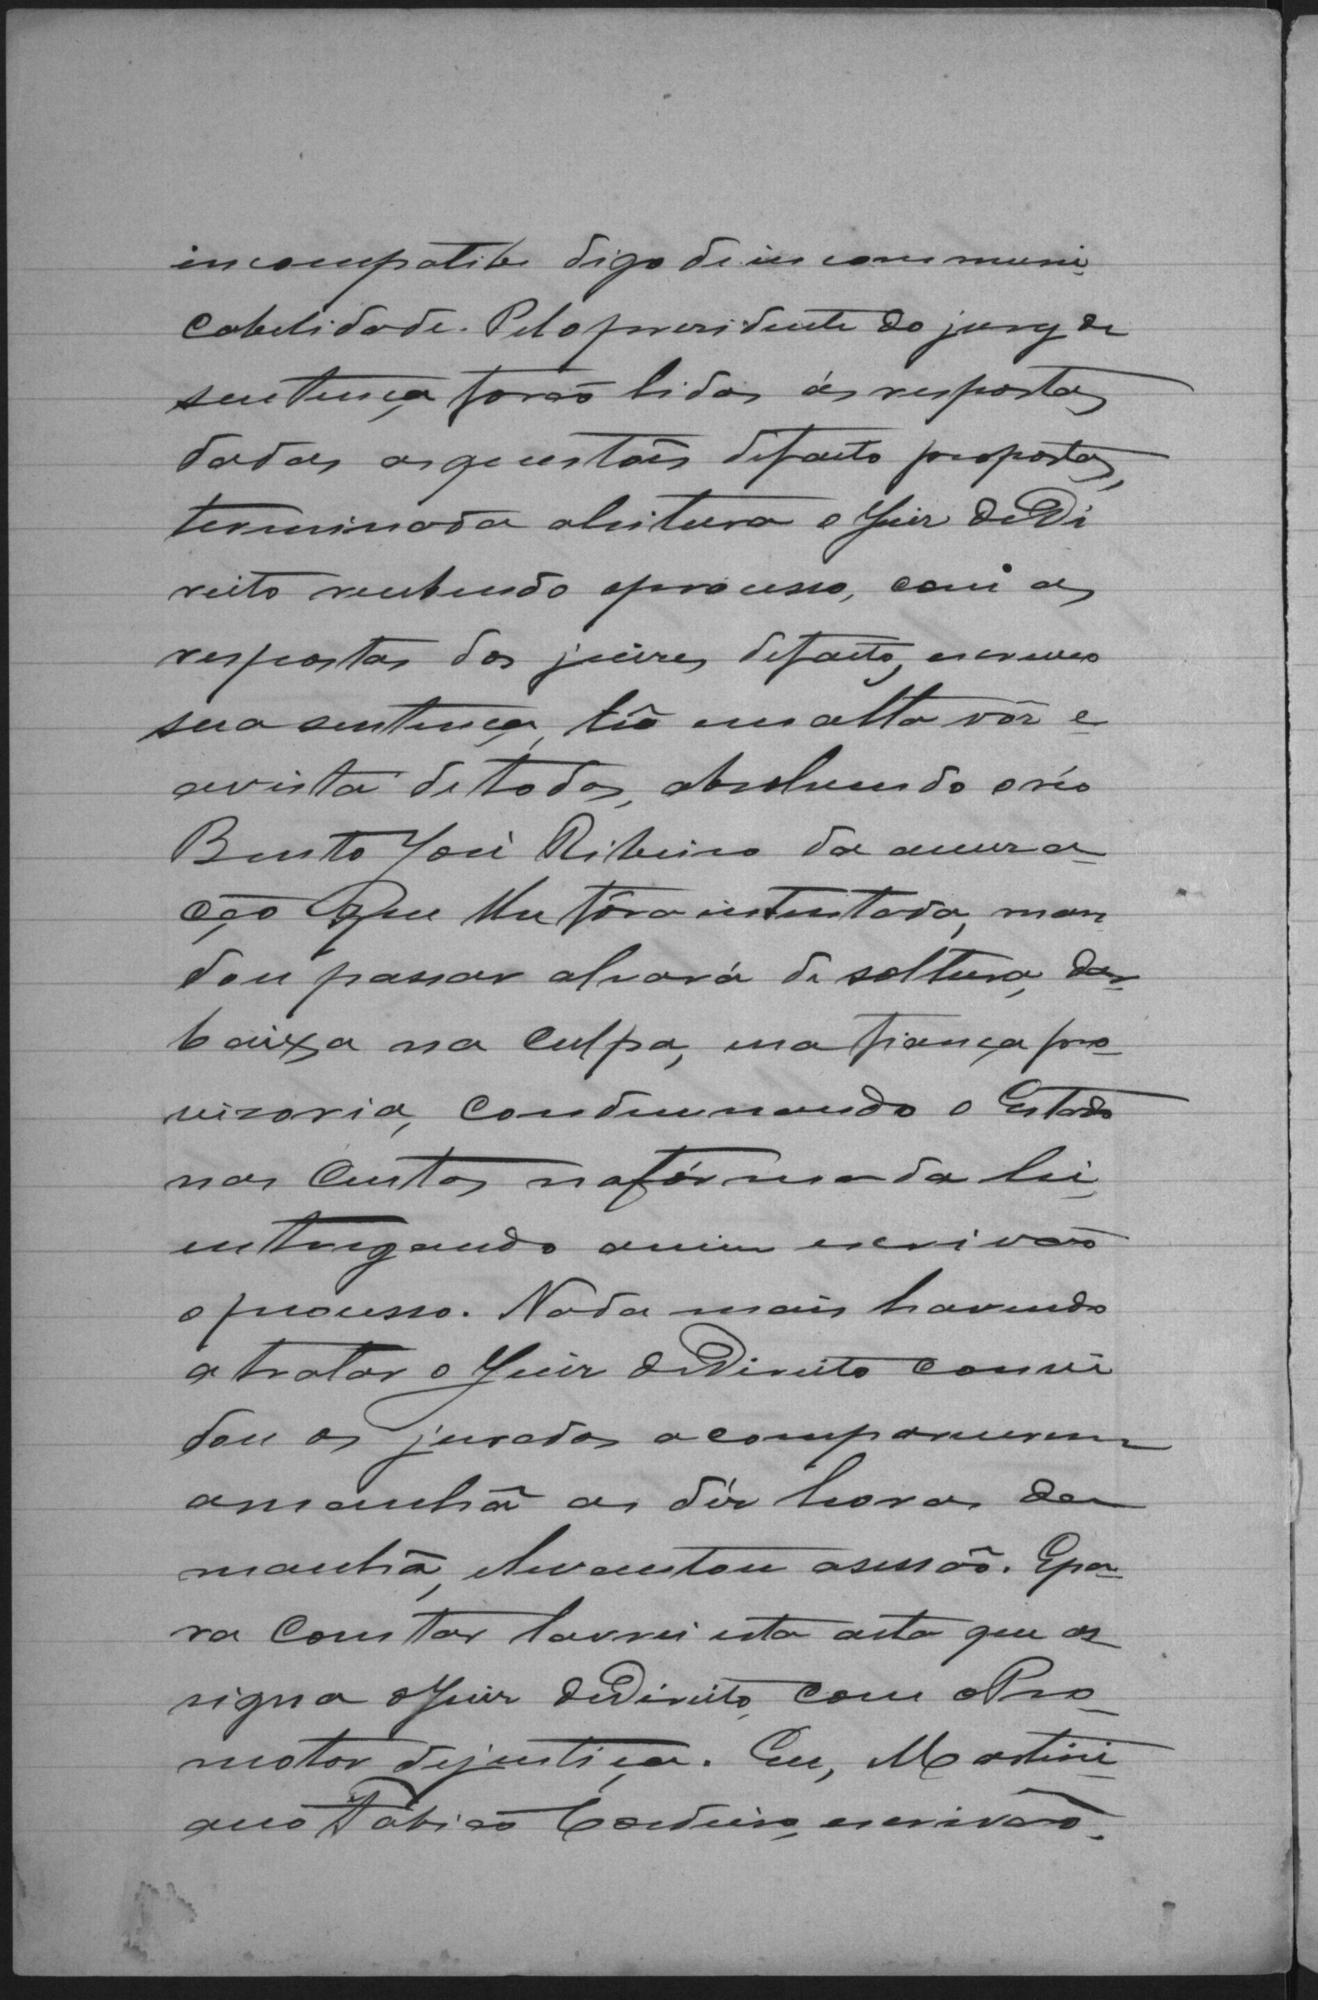 incompatibe digo de incommuni-
cabelidade. Pelo presidente do jury de
sentença forão lidas ás respostas
dadas as questões de facto propostas,
terminada a leitura o Juiz de Di
reito recebendo o processo, com as
respostas dos juizes de facto, escreveo
sua sentença, lêo em alta vôz e
a vista de todos, absolvendo o réo
Bento José Ribeiro da accusa-
ção que lhe fôra intentada, man
dou passar alvará de soltura, dar
baixa na culpa, e na fiança pro-
vizoria, condemnando o Estado
nas custas na fórma da lei,
entregando a mim escrivão
o processo. Nada mais havendo
a tratar o Juiz de Direito convi
dou os jurados a comparecerem
amanhã as déz horas da
manhã, e levantou a sessão. E pa-
ra constar lavrei esta acta que as-
signa o Juiz de Direito, com o Pro-
motor de justiça. Eu, Martini-
ano Fabião Cordeiro, escrivão.